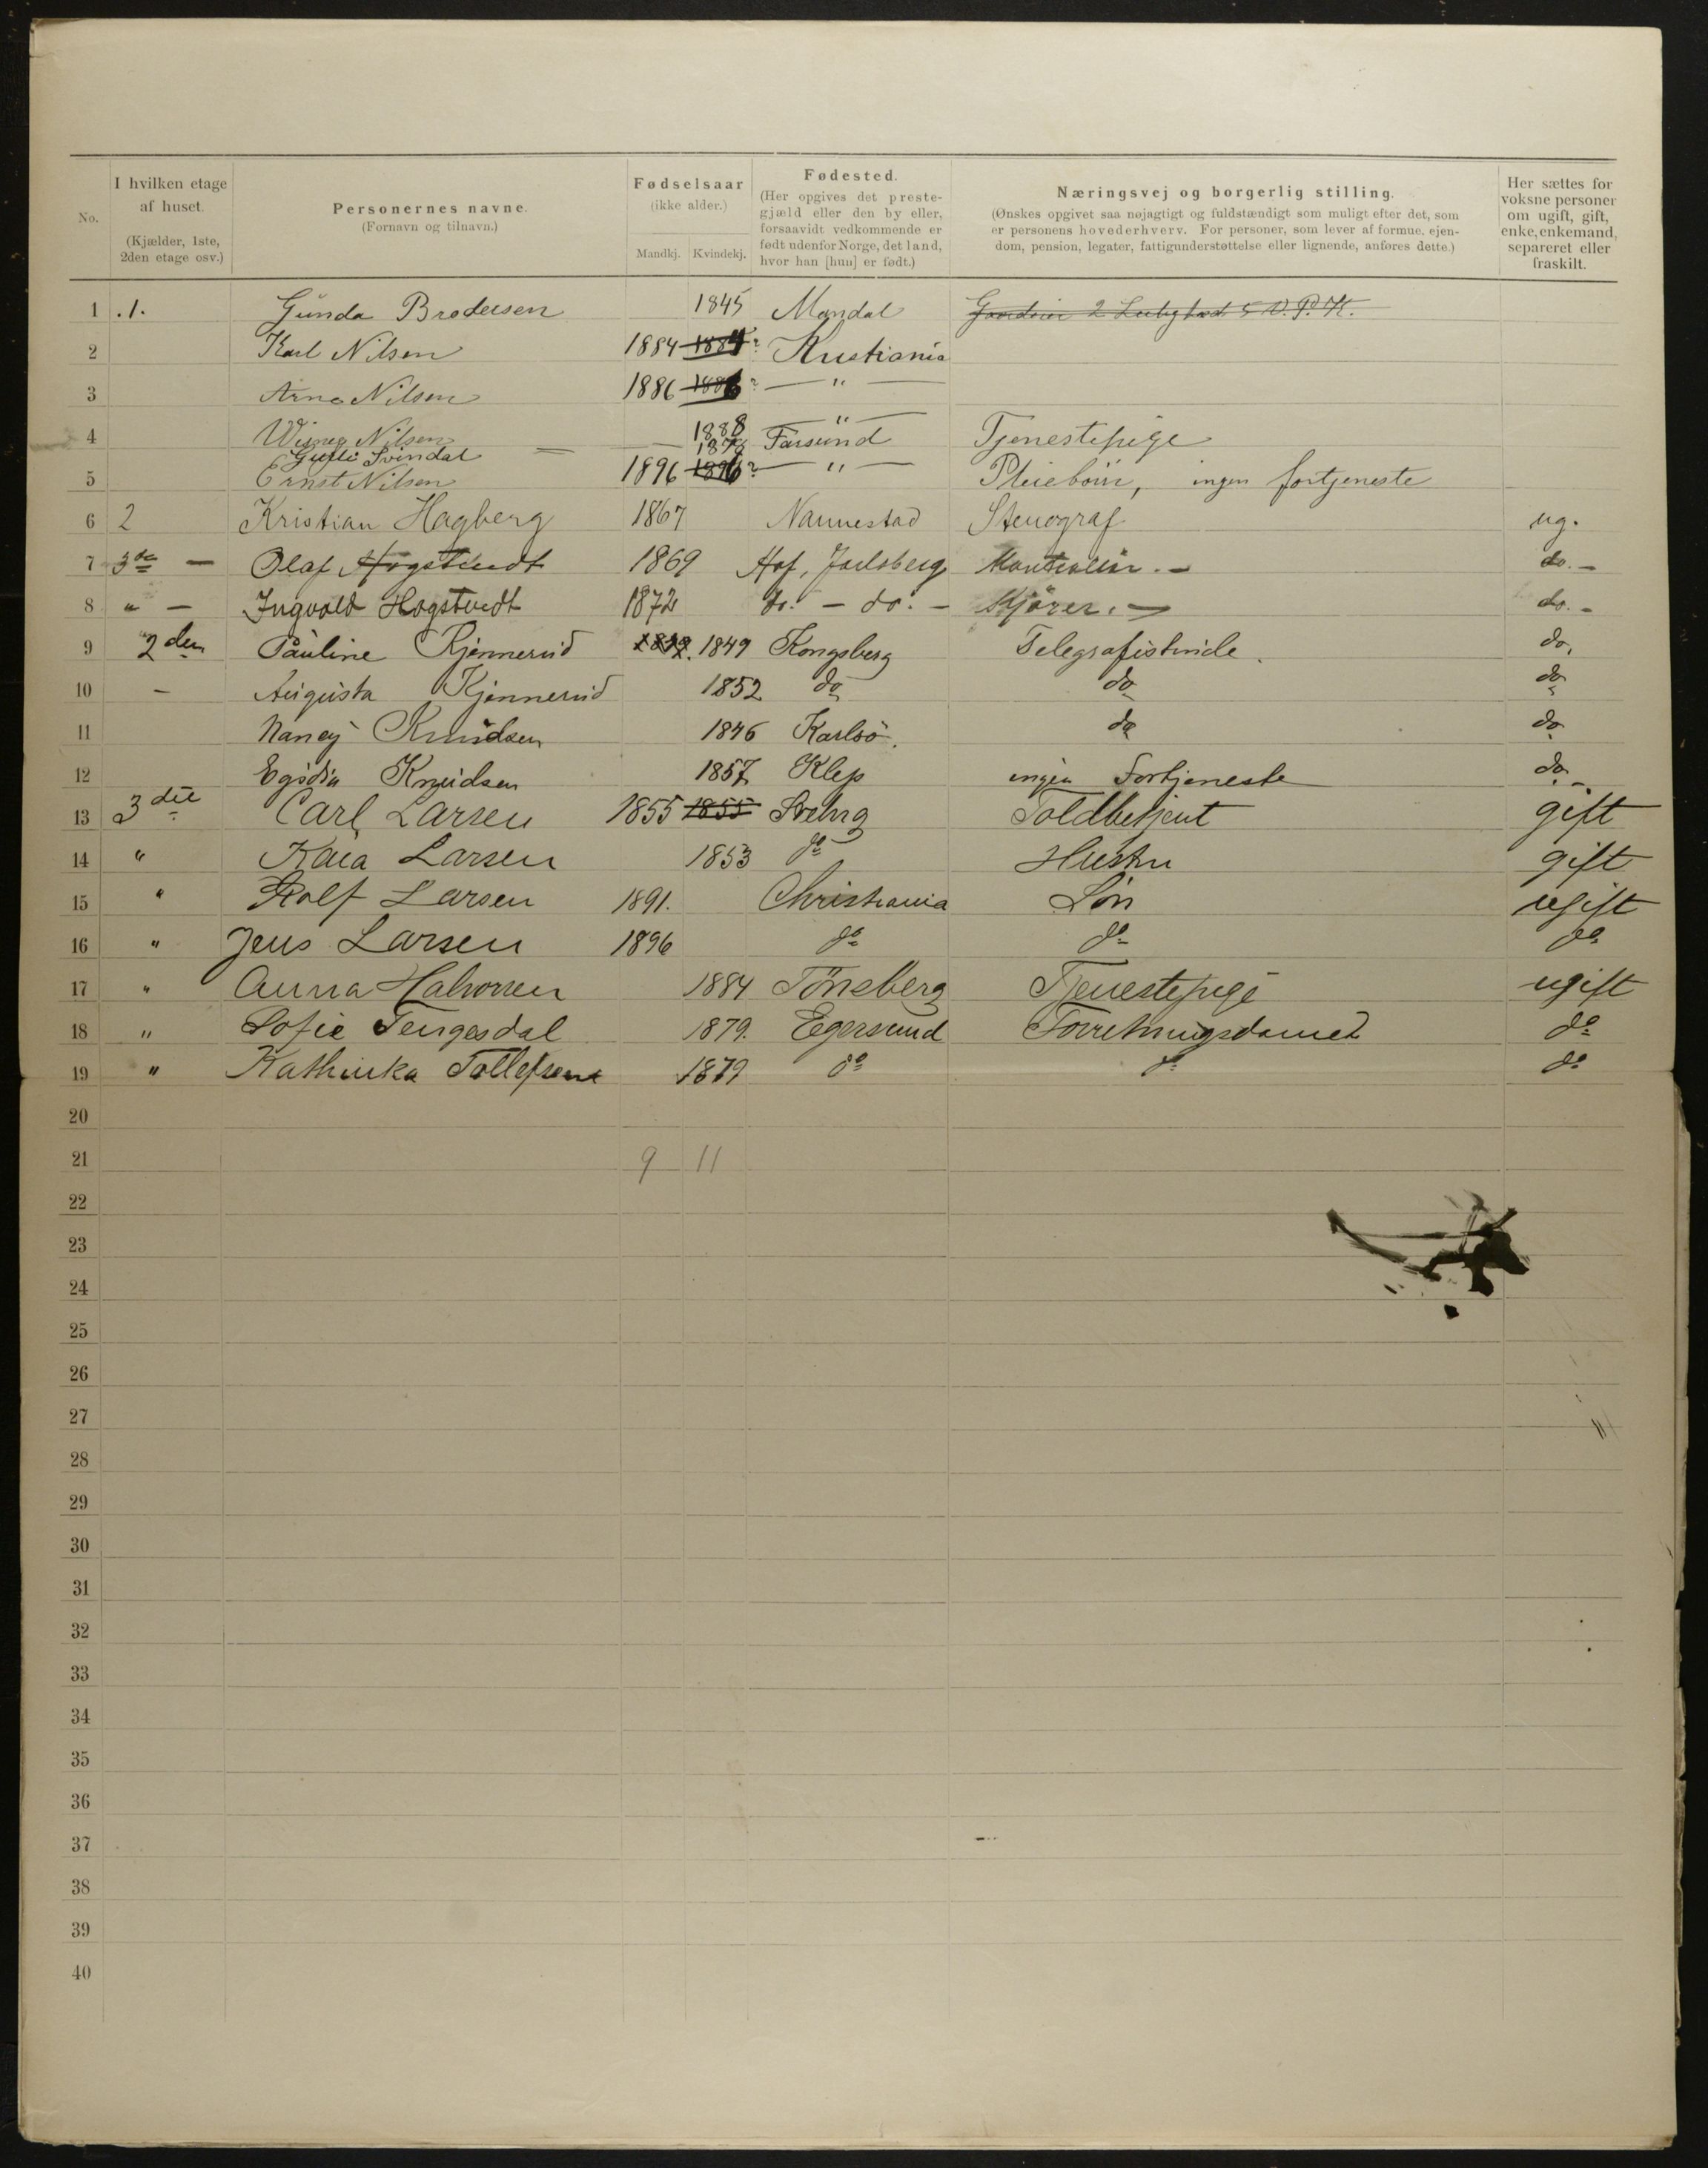 No.
I hvilken etage af huset. (Kjælder, 1ste, 2den etage osv.)
Personernes navne. (Fornavn og tilnavn.)
Fødselsaar (ikke alder.) Mandkj. Kvindekj.
Fødested. (Her opgives det prestegjæld eller den by eller, forsaavidt vedkommende er født udenfor Norge, det land, hvor han [hun] er født.)
Næringsvej og borgerlig stilling. (Ønskes opgivet saa nøjagtigt og fuldstændigt som muligt efter det, som er personens hovederhverv. For personer, som lever af formue, ejendom, pension, legater, fattigunderstøttelse eller lignende, anføres dette.)
Her sættes for voksne personer om ugift, gift, enke, enkemand, separeret eller fraskilt.
1 .1. Gunda Brodersen 1845 Mandal
2 Karl Nilsen 1884 1884? Kristiania
3 Arne Nilsen 1886 1886? — " —
4 Nilsen 1888 — " —
Svindal — — 1878 Farsund Tjenestepige
5 Ernst Nilsen 1896 1896? — " — Pleiebörn, ingen fortjeneste
6 2 Kristian Hagberg 1867 Nannestad Stenograf ug.
7 3de — Olaf Hogstvedt 1869 Hof, Jarlsberg do. —
8 " — Ingvald Hogstvedt 1872 do. — do. — Kjörer. — do. —
9 2den Pauline Kjennerud 1849 Kongsberg Telegrafistinde. do.
10 — Augusta Kjennerud 1852 do do do
11 Nancy Knudsen 1846 Karlsö. do do
12 Egidia Knudsen 1857 Klep ingen Fortjeneste do. —
13 3die Carl Larsen 1855 1855 Toldbetjent gift
14 " Kaia Larsen 1853 do Hustru gift
15 " Rolf Larsen 1891. Christiania Sön ugift
16 " Jens Larsen 1896 do do do
17 " Anna Halvorsen 1884 Tönsberg Tjenestepige ugift
18 " Sofie Tengesdal 1879. Egersund Forretningsdame do
19 " Kathinka Tollefsen 1879 do do do
20
21 9 11
22
23
24
25
26
27
28
29
30
31
32
33
34
35
36
37
38
39
40